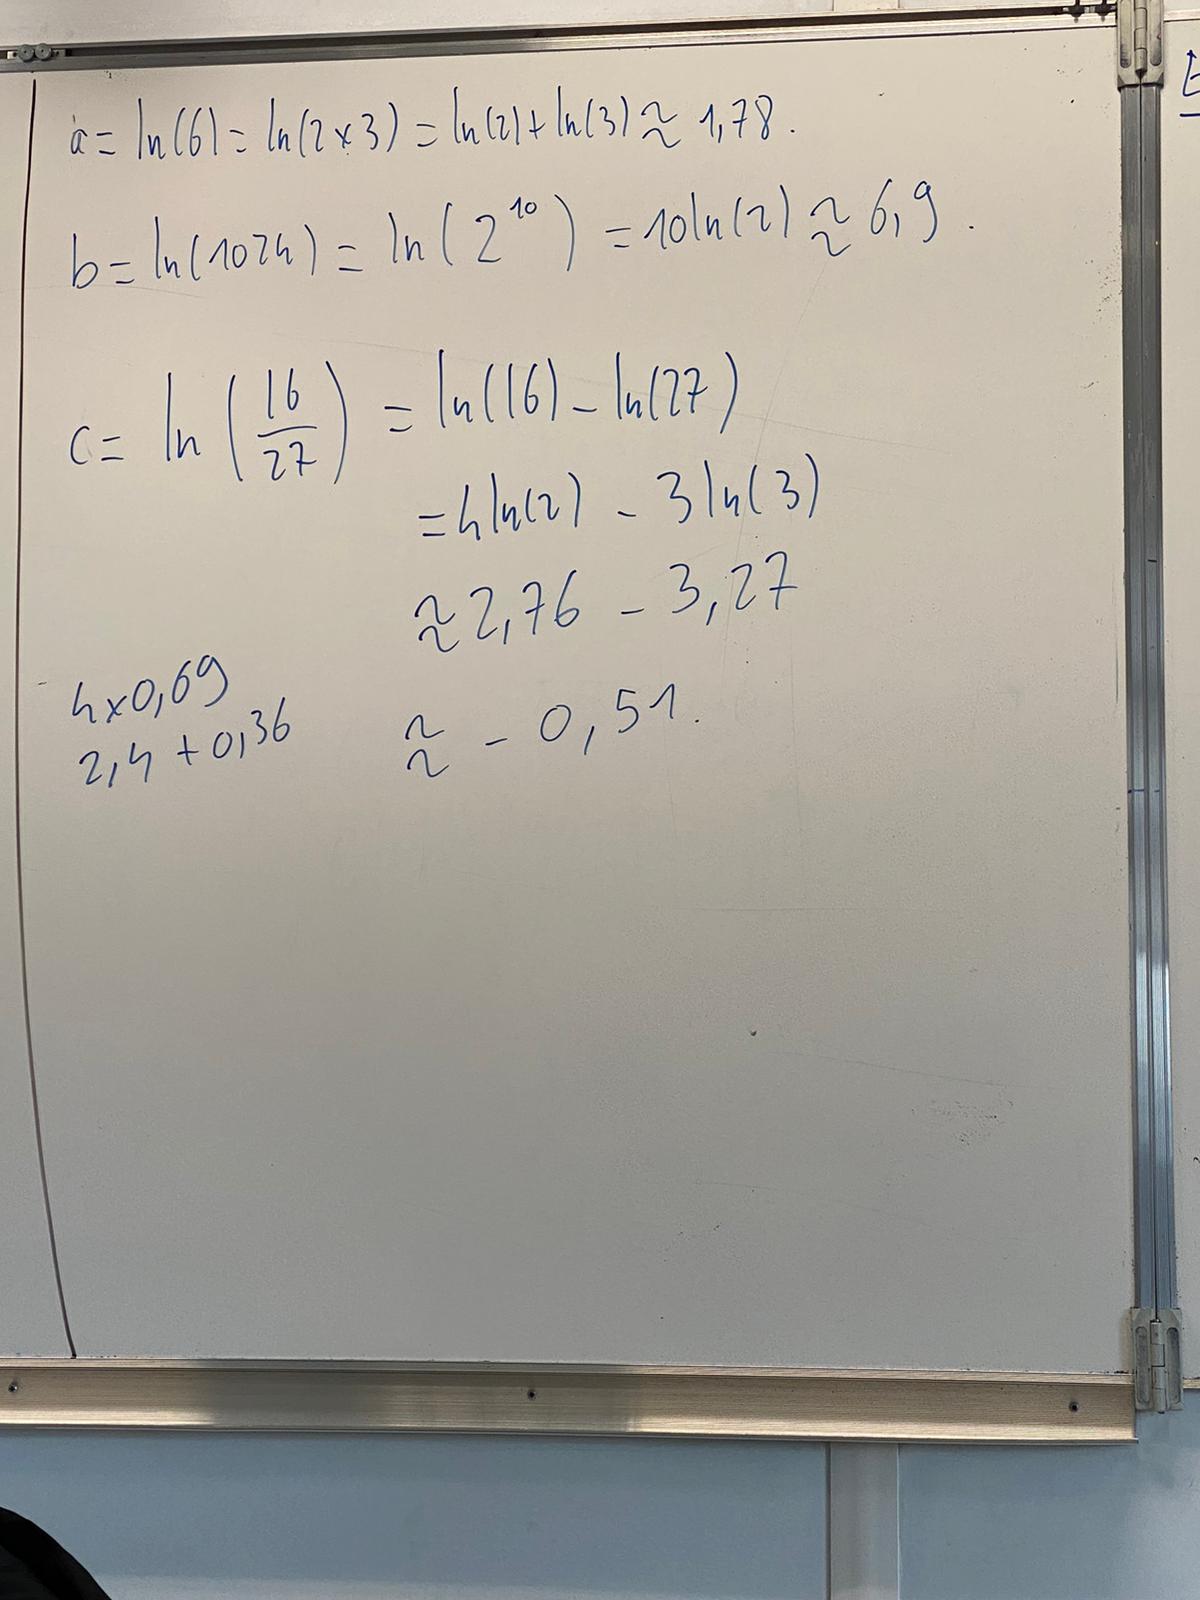 a = ln(6) = ln(2×3) = ln(2) + ln(3) ≈ 1,78.
b = ln(1024) = ln(2^10) = 10 ln(2) ≈ 6,9.
c = ln(16/27) = ln(16) - ln(27)
= 4 ln(2) - 3 ln(3)
≈ 2,76 - 3,27
4×0,69
2,4 + 0,36
≈ - 0,51.